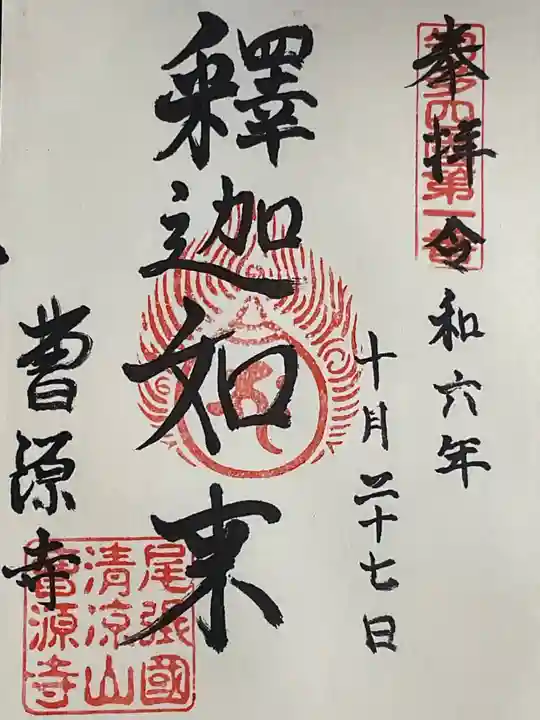 奉拝
知多四国第一番
令和六年
十月二十七日
釋迦如来
曹源寺
尾張國
清涼山
曹源寺